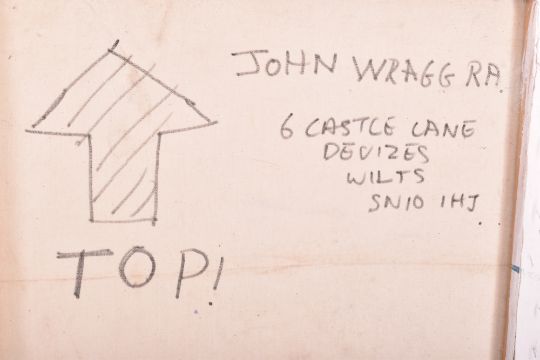 JOHN WRAGG RA
6 CASTLE LANE
DEVIZES
WILTS
SN10 1HJ
TOP!